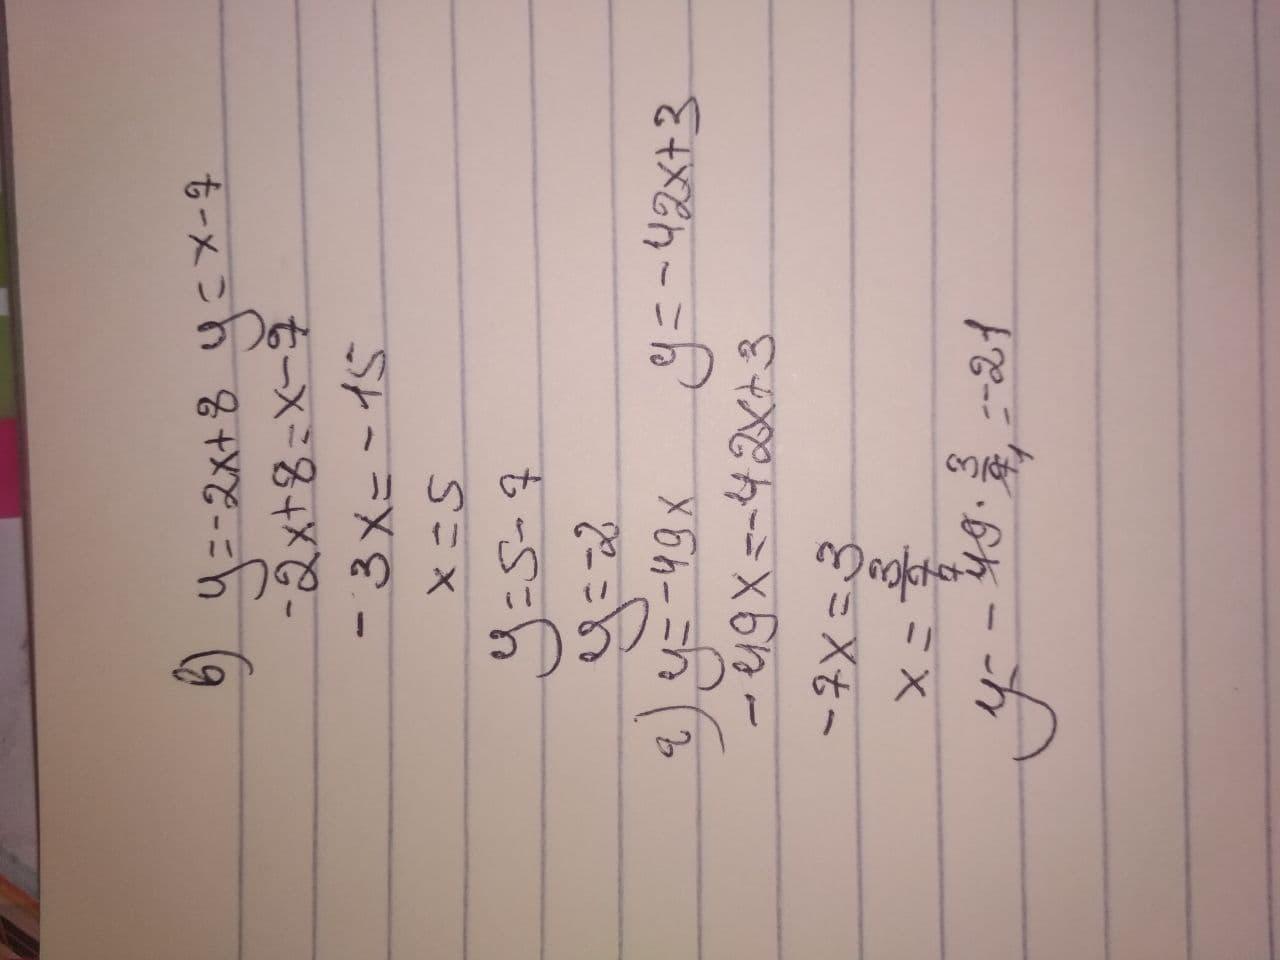 в) y=-2x+8 y=x-7
-2x+8=x-7
-3x=-15
x=5
y=5-7
y=-2
г) y=-49x y=-42x+3
-49x=-42x+3
-7x=3
x=3/7
y=-49·3/7=-21